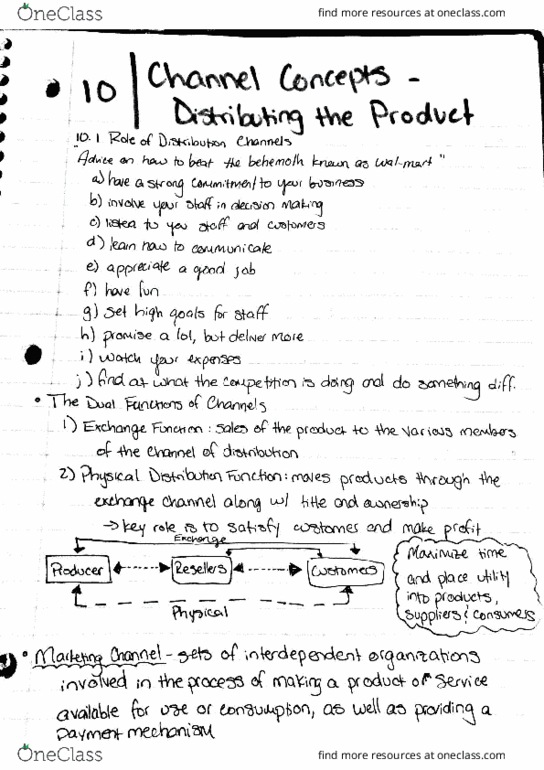 OneClass
find more resources at oneclass.com
10 | Channel Concepts -
Distributing the Product
10.1 Role of Distribution Channels
Advice on how to beat the behemoth known as Wal-mart"
a) have a strong commitment to your business
b) involve your staff in decision making
c) listen to you staff and customers
d) learn how to communicate
e) appreciate a good job
f) have fun
g) set high goals for staff
h) promise a lot, but deliver more
i) watch your expenses
j) find at what the competition is doing and do something diff.
• The Dual Functions of Channels
1) Exchange Function: sales of the product to the various members
of the channel of distribution
2) Physical Distribution Function: moves products through the
exchange channel along w/ title and ownership
→ key role is to satisfy customer and make profit
Exchange
Producer
Resellers
Customers
Physical
Maximize time
and place utility
into products,
suppliers & consumers
• Marketing Channel - sets of interdependent organizations
involved in the process of making a product or service
available for use or consumption, as well as providing a
payment mechanism
OneClass
find more resources at oneclass.com